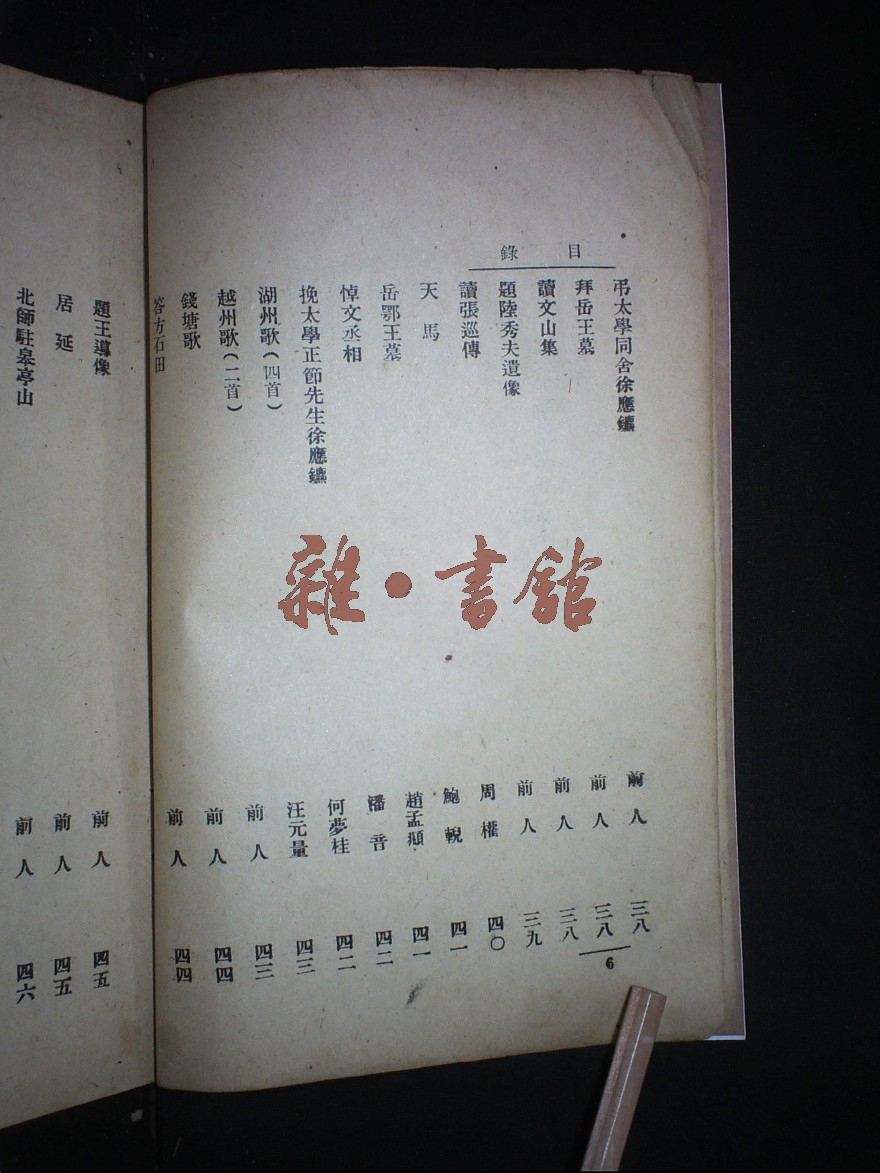 目錄
弔太學同舍徐應鑣 前人 三八
拜岳王墓 前人 三八
讀文山集 前人 三八
題陸秀夫遺像 前人 三九
讀張巡傳 周權 四〇
天馬 鮑輗 四一
岳鄂王墓 趙孟頫 四一
悼文丞相 潘音 四二
挽太學正節先生徐應鑣 何夢桂 四二
湖州歌(四首) 汪元量 四三
越州歌(二首) 前人 四三
錢塘歌 前人 四四
答方石田 前人 四四
6
題王導像 前人 四五
居延 前人 四五
北師駐皋亭山 前人 四六
雜·書館